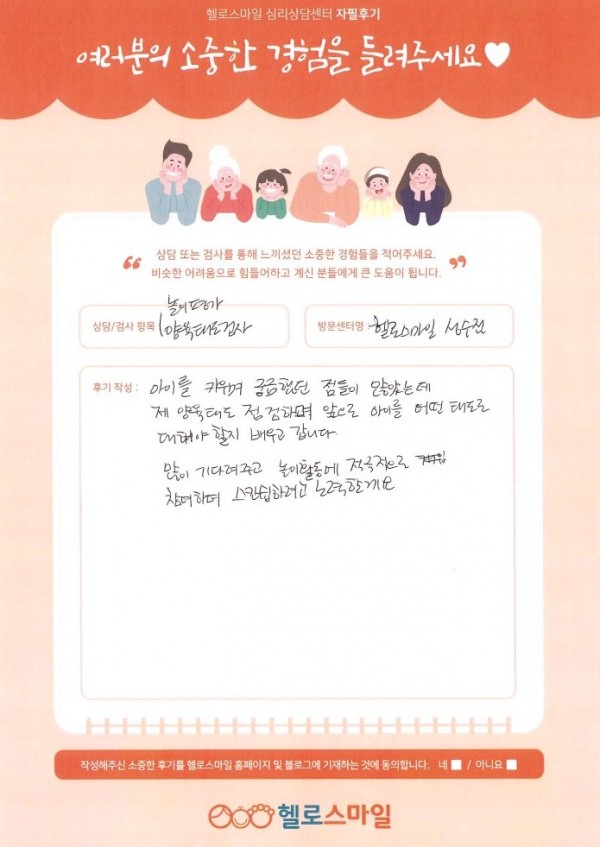 헬로스마일 심리상담센터 자필후기
여러분의 소중한 경험을 들려주세요♥
“ 상담 또는 검사를 통해 느끼셨던 소중한 경험들을 적어주세요.
비슷한 어려움으로 힘들어하고 계신 분들에게 큰 도움이 됩니다. ”
놀이평가
상담/검사 항목 : 양육태도검사
방문센터명 : 헬로스마일 성수점
후기 작성 : 아이를 키우며 궁금했던 점들이 많았는데
제 양육태도 점검하며 앞으로 아이를 어떤 태도로
대해야 할지 배우고 갑니다.
많이 기다려주고 놀이활동에 적극적으로
참여하며 스킨쉽하려고 노력할게요
작성해주신 소중한 후기를 헬로스마일 홈페이지 및 블로그에 기재하는 것에 동의합니다. 네 ■ / 아니요 ■
헬로스마일